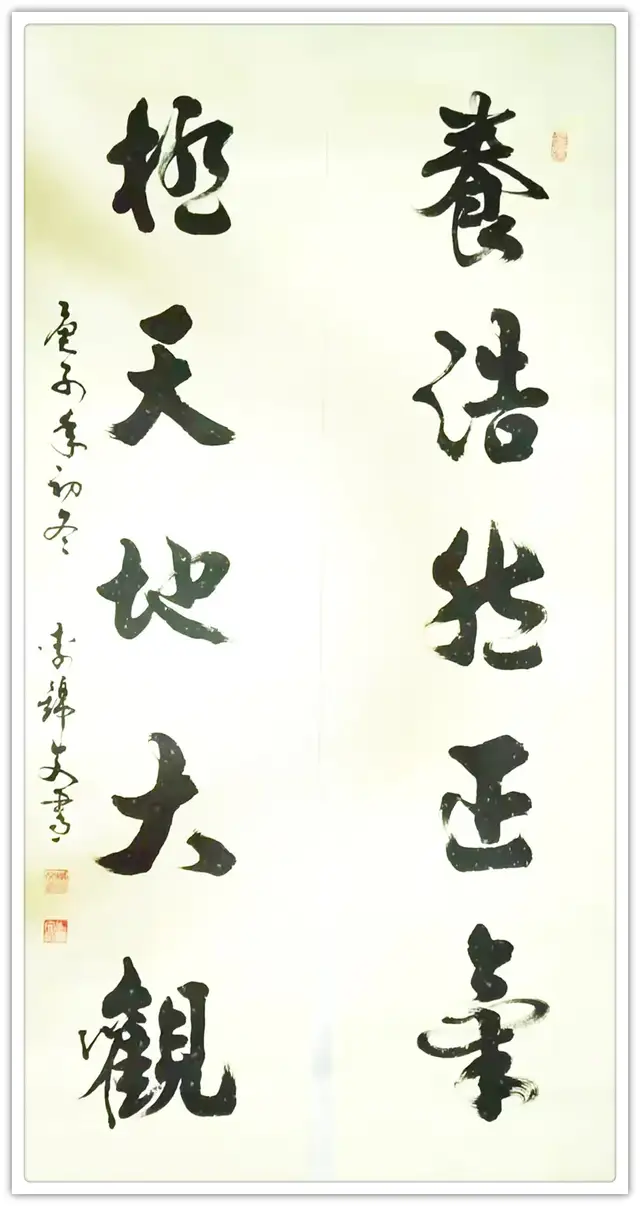 養浩然正氣
極天地大觀
庚子年初冬
李錦文書